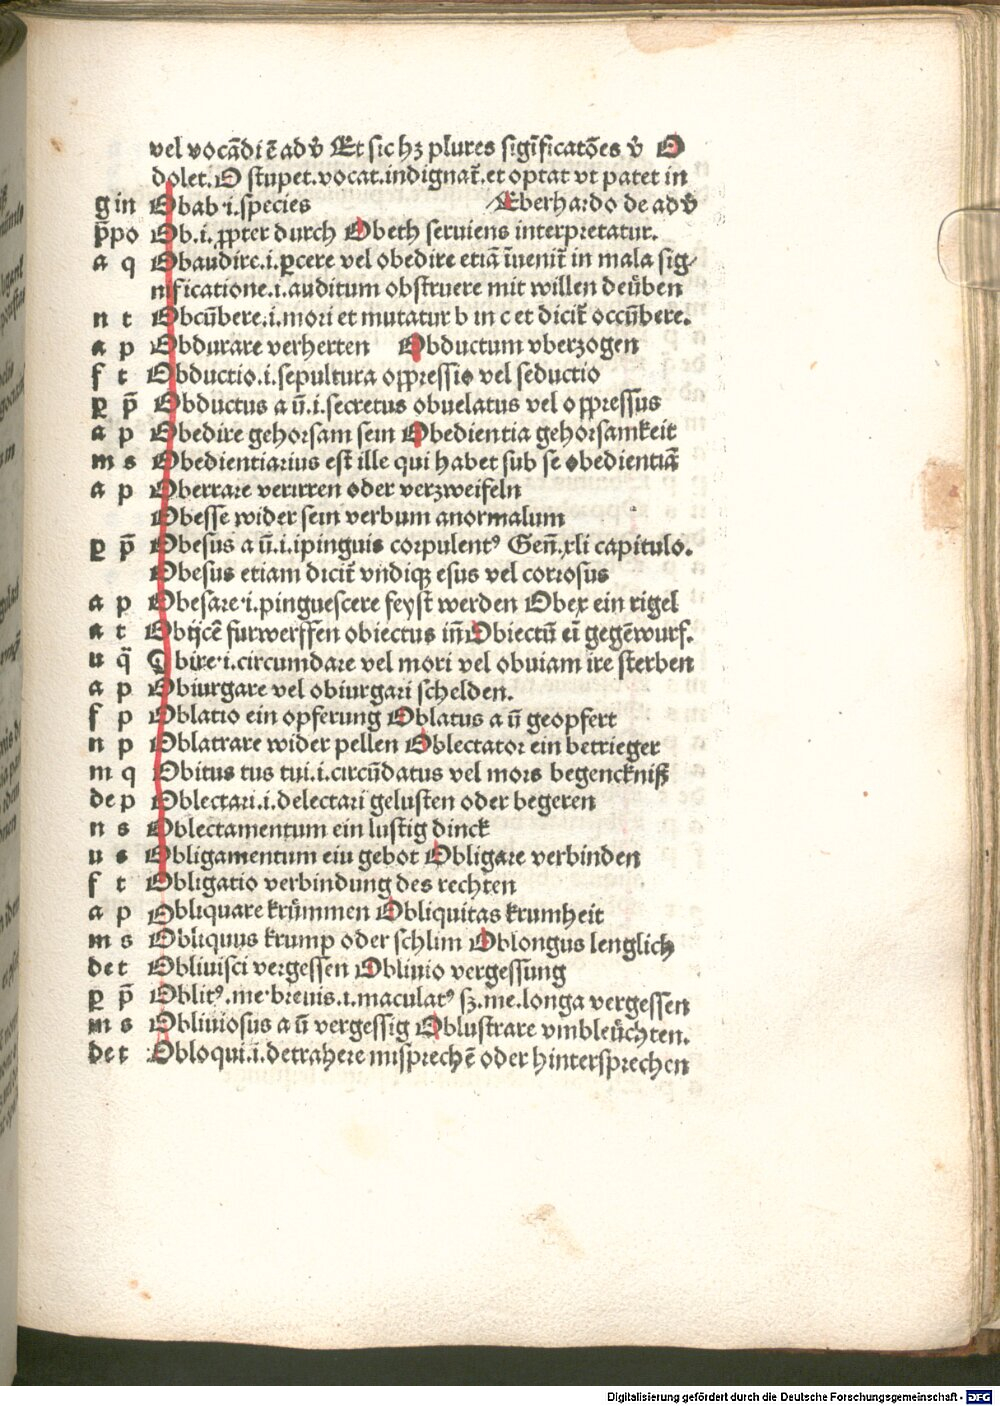 vel vocādi ē adv̄ Et sic hꝫ plures sigīficatōes v̄ O
dolet. O stupet. vocat. indignat᷑. et optat vt patet in
g in Obab .i. species Eberhardo de adv̄
p̄po Ob .i. ꝓpter durch Obeth seruiens interpretatur.
a q Obaudire .i. ꝑcere vel obedire etiā īuenit᷑ in mala sig⸗
nificatione .i. auditum obstruere mit willen deüben
n t Obcūbere .i. mori et mutatur b in c et dicit᷑ occūbere.
a p Obdurare verherten Obductum vberzogen
f t Obductio .i. sepultura oppressio vel seductio
ꝑ p̄ Obductus a ū .i. secretus obuelatus vel oppressus
a p Obedire gehorsam sein Obedientia gehorsamkeit
m s Obedientiarius est ille qui habet sub se obedientiā
a p Oberrare verirren oder verzweifeln
Obesse wider sein verbum anormalum
ꝑ p̄ Obesus a ū .i. ipinguis corpulentꝰ Geñ. xli capitulo.
Obesus etiam dicit᷑ vndiqꝫ esus vel corrosus
a p Obesare .i. pinguescere feyst werden Obex ein rigel
a t Obijcē furwerffen obiectus in̄ Obiectū eī gegēwurf.
u q̈ Obire .i. circumdare vel mori vel obuiam ire sterben
a p Obiurgare vel obiurgari schelden.
f p Oblatio ein opferung Oblatus a ū geopfert
n p Oblatrare wider pellen Oblectator ein betrieger
m q Obitus tus tui .i. circūdatus vel mors begenckniß
de p Oblectari .i. delectari gelusten oder begeren
n s Oblectamentum ein lustig dinck
u s Obligamentum eiu gebot Obligare verbinden
f t Obligatio verbindung des rechten
a p Obliquare krümmen Obliquitas krumheit
m s Obliquus krump oder schlim Oblongus lenglich
de t Obliuisci vergessen Obliuio vergessung
ꝑ p̄ Oblitꝰ. me breuis .i. maculatꝰ sꝫ. me. longa vergessen
m s Obliuiosus a ū vergessig Oblustrare vmbleüchten.
de t Obloqui .i. detrahere misprechē oder hintersprechen
Digitalisierung gefördert durch die Deutsche Forschungsgemeinschaft - DFG